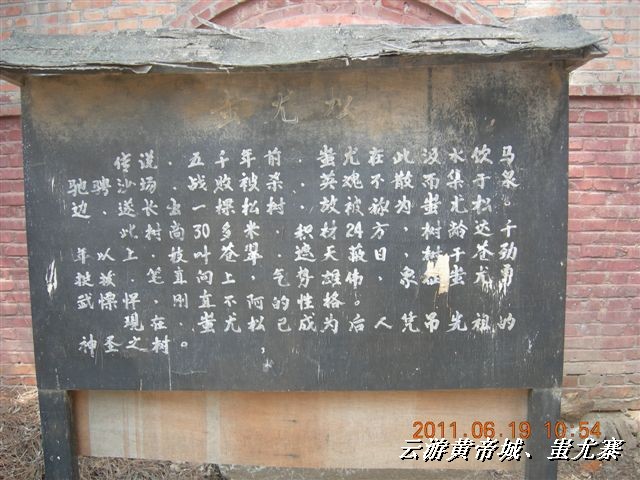 蚩尤松
传说.五千年前.蚩尤在此汲水饮马.
驰骋沙场.战败被杀.英魂不散而集于泉
边.遂长出一棵松树.故被称为蚩尤松.
此树尚30多米.积材24方.树龄达千
年以上.枝叶苍翠.遮天蔽日.树干苍劲
挺拔.笔直向上.气势雄伟.象蚩尤勇
武慓悍.刚直不阿的性格.
現在蚩尤松已成为后人凭吊先祖的
神圣之树。
2011.06.19 10:54
云游黄帝城、蚩尤寨